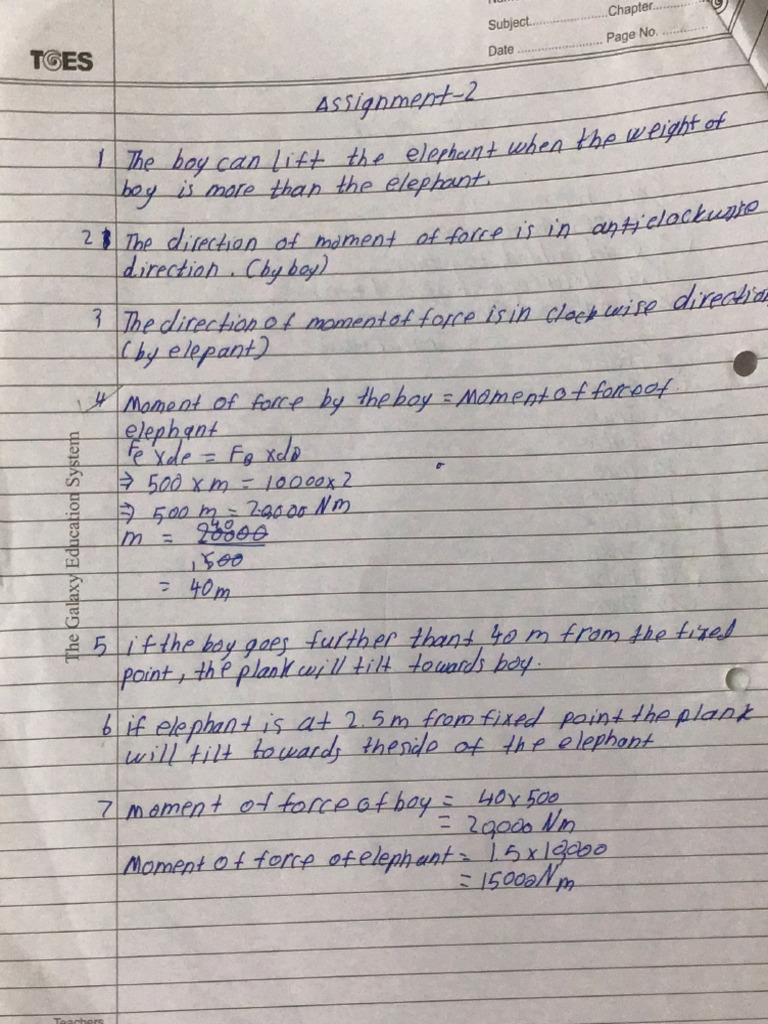 Subject............... Chapter.........
TGES
Date ..................... Page No. ............
Assignment-2
1 The boy can lift the elephant when the weight of
boy is more than the elephant.
2 The direction of moment of force is in anticlockwise
direction. (by boy)
3 The direction of moment of force is in clockwise direction
(by elepant)
4 Moment of force by the boy = Moment of force of
elephant
Fe x de = FB x dB
⇒ 500 x m = 10000 x 2
⇒ 500 m = 20000 Nm
40
m = 20000
500
= 40m
The Galaxy Education System
5 if the boy goes further thant 40 m from the fixed
point, the plank will tilt towards boy.
6 if elephant is at 2.5m from fixed point the plank
will tilt towards theside of the elephant
7 moment of force of boy = 40 x 500
= 20000 Nm
Moment of force of elephant = 1.5 x 10000
= 15000 Nm
Teachers